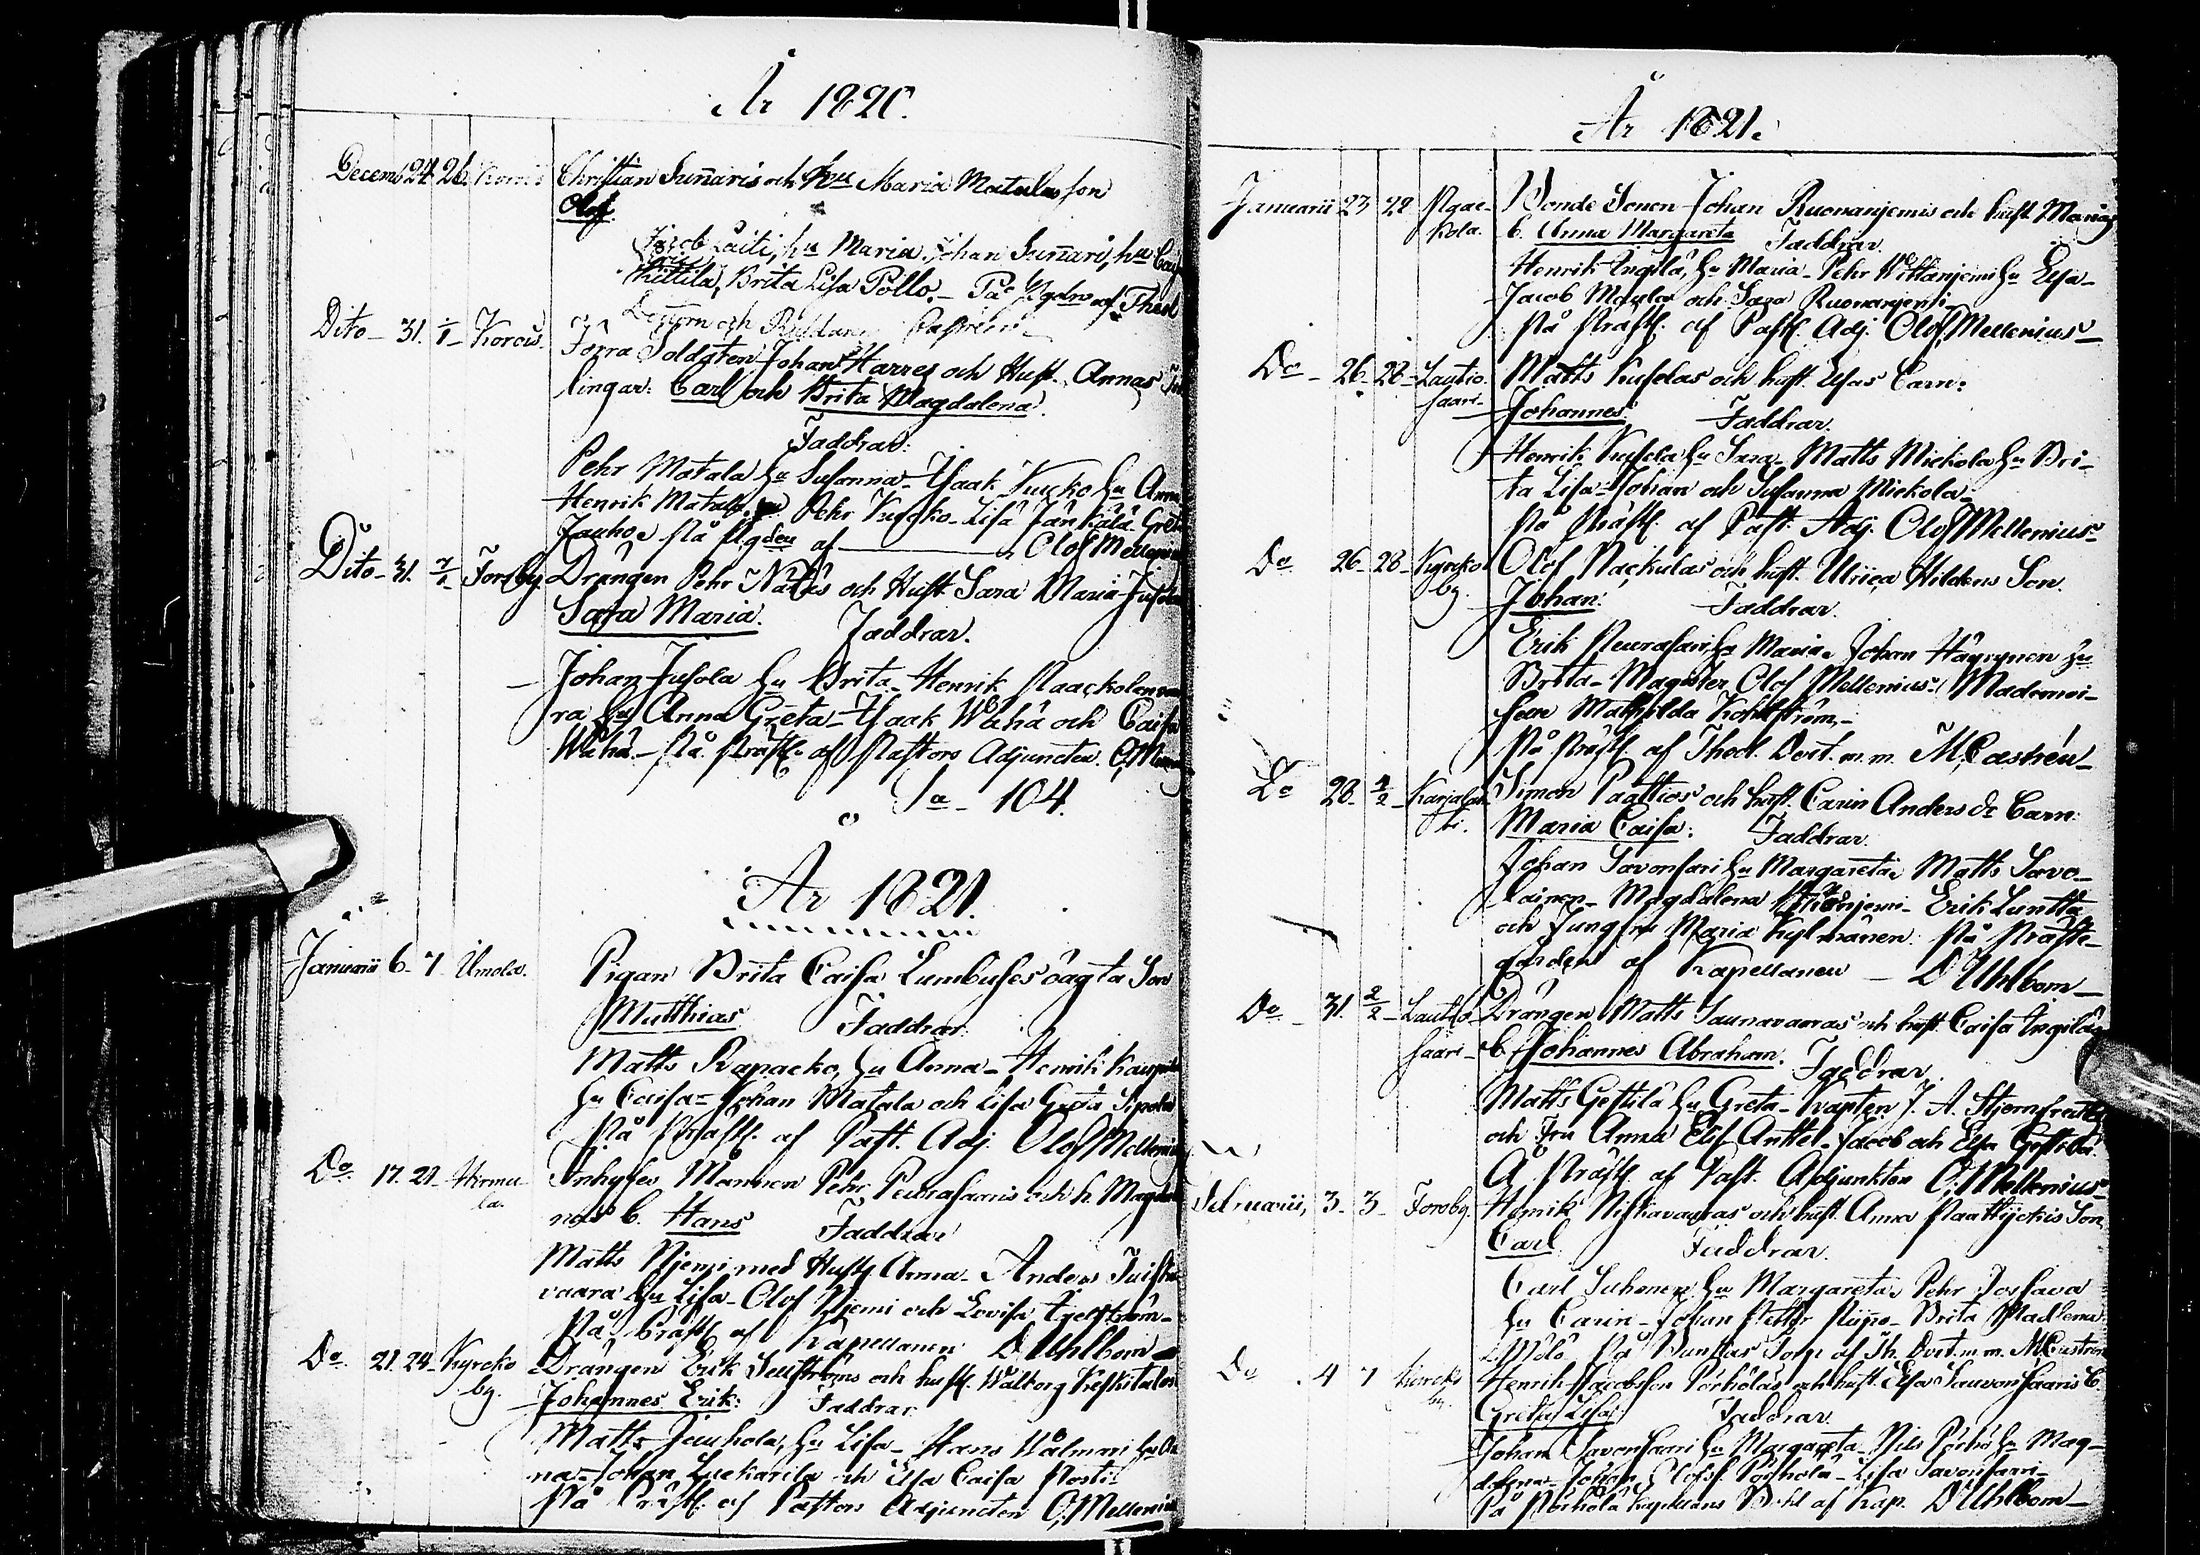 År 1820.
Decemb 24 26 Korois Christian Sunaris och Hu Maria Matalas son
Olof.
Jacob Laiti, hu Maria. Johan Sunari, hu
Kittilä, Brita Lisa Pollo. På Pgdn af Theol
Doctorn och Riddaren Castrén
Dito 31. 1/1 Korois. Förra Soldaten Johan Harres och Hust. Annas
lingar: Carl och Brita Magdalena.
Faddrar:
Pehr Matala hu Susanna - Isaak Kucko hu Anna
Henrik Matala, Pehr Kucko - Lisa Jänkälä Greta
Jauho. På Pgden af Olof Mellenius
Dito 31. 2/1 Forsby. Drängen Pehr Näckis och Hust Sara Maria Jusolas
Sara Maria. Faddrar.
Johan Jusola hu Brita - Henrik
ra hu Anna Greta - Isaak Wähä och Caisa
Wähä - på Prästg. af Pastors Adjuncten O. Mellenius
Sa - 104.
År 1821.
Januarii 6 - 7 Umola. Pigan Brita Caisa Lumbuses oägta Son
Matthias Faddrar:
Matts Rapacko, hu Anna - Henrik
hu Caisa - Johan Matala och Lisa Greta Sipola
På Prästg. af Past. Adj. Olof Mellenius
Do 17. 21 - Hirmu-
la. Inhyses Mannen Pehr Peurasaaris och h. Magdale
nas b. Hans Faddrar
Matts Njemi med Hust Anna - Anders
vaara hu Lisa - Olof Njemi och Lovisa
På Prästg af Kapellanen D Uhlbom
Do 21. 24 - Kyrcko
by. Drängen Erik Sellströms och hust. Walborg Keskitalos
Johannes Erik: Faddrar
Matts Jauhola, hu Lisa - Hans Wälmari hu An
na - Johan Luckarila och Elsa Caisa Posti
På Prästg. af Pastors Adjuncten O. Mellenius
År 1821.
Januarii 23 28 Ngac-
kola. Bonde Sonen Johan Ruonanjemis och hust Marias
b. Anna Margareta Faddrar.
Henrik Ingilä, hu Maria - Pehr Wittanjemi hu Elsa -
Jacob Maula och Sara Ruonanjemi -
På Prästg. af Past. Adj. Olof Mellenius -
Do - 26 - 28 - Lautio-
saari - Matts Kuselas och hust. Elsas Barn:
Johannes. Faddrar.
Henrik Kusela hu Sara - Matts Mickola hu Bri-
ta Lisa - Johan och Susanna Mickola -
På Prästg. af Past. Adj. Olof Mellenius -
Do 26 - 28 - Kyrcko
by. Olof Nackulas och hust. Ulrica Hildens Son.
Johan: Faddrar.
Erik Peurasari hu Maria - Johan Häyrynen hu
Brita - Magister Olof Mellenius - Mademoi-
selle Mathilda Kohlström, -
På Prästg af Theol. Doct. m. m. M. Castrén -
Do 28 - 4/2 - Karjalah-
ti. Simon Paattios och hust. Carin Anders dr Barn:
Maria Caisa: Faddrar.
Johan Savonsari hu Margareta - Matts Savo-
lainen - Magdalena - Erik Luntta
och Jungfru Maria Kylmänen: På Präste-
gården af Kapellanen - D Uhlbom -
Do - 31. 2/2 - Lautio-
saari - Drängen Matts Saunavaaras och hust. Caisa Ingiläs
b. Johannes Abraham. Faddrar
Matts Gestilä hu Greta - Kapten J. A. Stjerncreutz
och Fru Anna Elis. Antell - Jacob och Elsa Gestilä.
A Prästg af Past. Adjunkten O. Mellenius -
Februarii, 3 - 3 - Forsby. Henrik Niskavaaras och hust. Anna Son
Carl. Faddrar.
Carl Suhonen hu Margareta - Pehr
hu Carin - Johan Petter - Brita Madlena
På af Th. Doct. m. m. M. Castrén
Do 4 7 Kyrcko
by. Henrik Jacobsson Pörhöläs och hust. Elsa Sauvonsaaris b.
Greta Lisa: Faddrar.
Johan Savonsaari hu Margareta - Nils Pörhö hu Mag-
dalena - Johan Olofss. Pörhölä - Lisa Savonsaari -
På Pörhölä Kapellans Bohl af Kap. D Uhlbom -